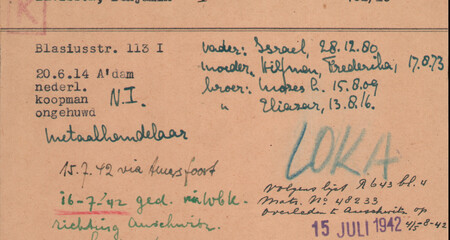 K
Blasiusstr. 113 I
vader: Israel, 28.12.80
moeder: Hilfman, Frederika, 17.8.73
20.6.14 A'dam
nederl.
koopman N.I.
ongehuwd
broer: Mozes 15.8.09
" Eliazar, 13.8.16.
metaalhandelaar
LOKA
15.7.42 via Amersfoort
16-7-'42 ged. Wbk.
richting Auschwitz.
Volgens lijst R 643 bl. 4
Matr. No 48233
overleden te Auschwitz op
15 JULI 1942